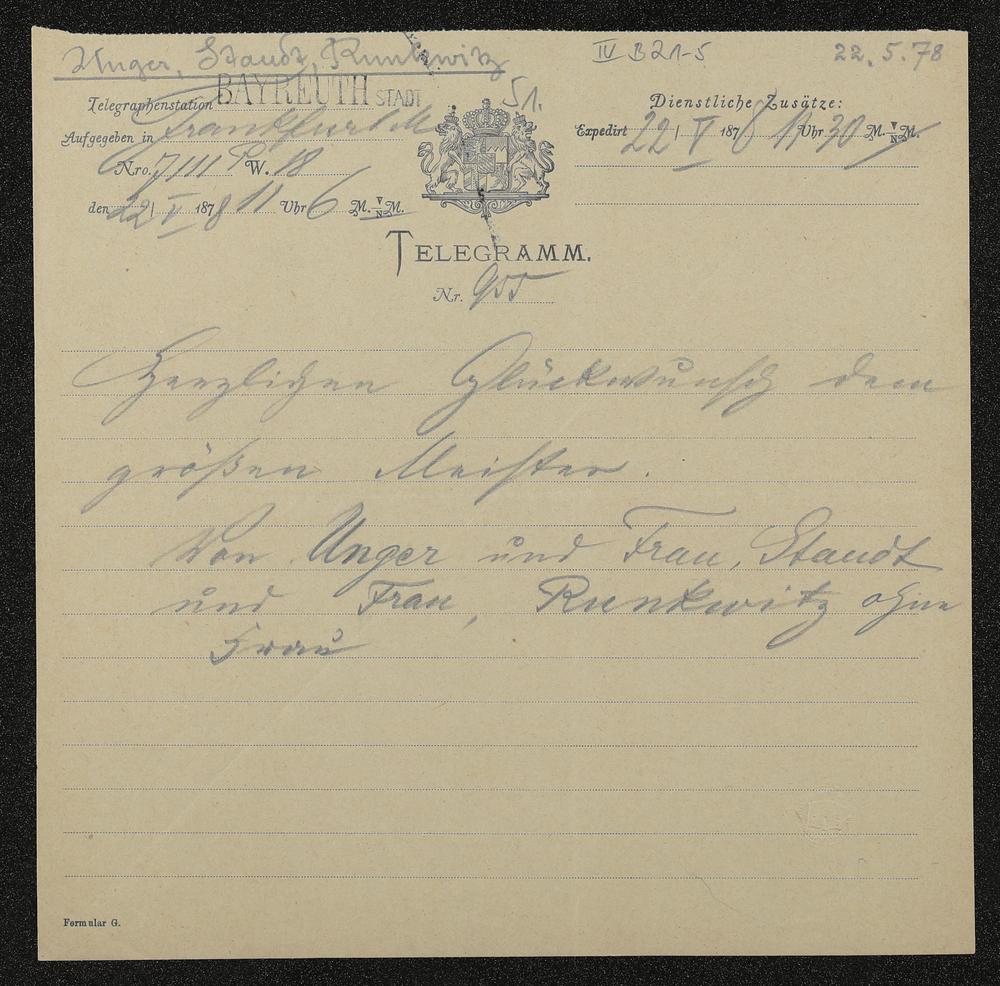 Unger, Staudt, Runkwitz
IV B 21-5
22.5.78
Telegraphenstation BAYREUTH STADT
51.
Dienstliche Zusätze:
Aufgegeben in Frankfurt M
Expedirt 22/V 1878 11 Uhr 30 M. V/N M.
Nro. W. 18
den 22/V 1878 11 Uhr 6 M. V/N M.
TELEGRAMM.
Nr. 955
Herzlichen Glückwunsch dem
größen Meister.
Von Unger und Frau, Staudt
und Frau, Runkwitz ohne
Frau
Formular G.